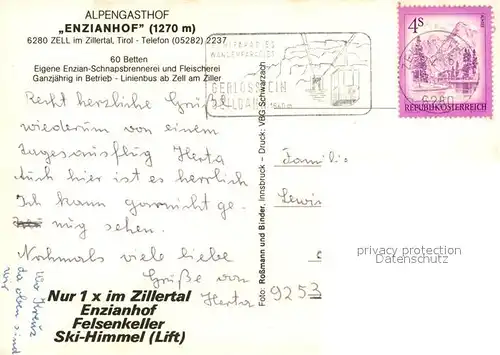 ALPENGASTHOF
„ENZIANHOF" (1270 m)
6280 ZELL im Zillertal, Tirol - Telefon (05282) 2237
60 Betten
Eigene Enzian-Schnapsbrennerei und Fleischerei
Ganzjährig in Betrieb - Linienbus ab Zell am Ziller
WANDERPARADIES
GERLOSSTEIN
1640 m
6280
4S
REPUBLIK ÖSTERREICH
Recht herzliche Grüße
wiederum von einem
Tagesausflug Herta
Auch hier ist es herrlich
Ich kann gar nicht ge-
nug sehen.
Nochmals viele liebe
Grüße von
Herta
Wo Kreuz
da oben sind
wir
Nur 1 x im Zillertal
Enzianhof
Felsenkeller
Ski-Himmel (Lift)
Foto: Roßmann und Binder, Innsbruck - Druck: VBG Schwarzach
Famili
Lewis
9253
privacy protection
Datenschutz